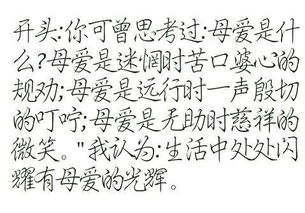 开头:你可曾思考过:母爱是什
么?母爱是迷惘时苦口婆心的
规劝;母爱是远行时一声殷切
的叮咛;母爱是无助时慈祥的
微笑。"我认为:生活中处处闪
耀有母爱的光辉。